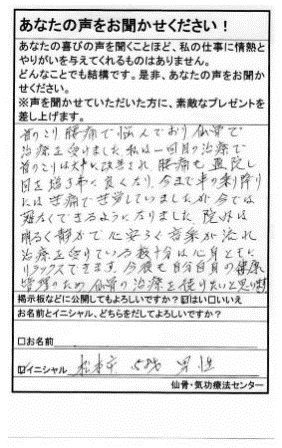 あなたの声をお聞かせください！
あなたの喜びの声を聞くことほど、私の仕事に情熱と
やりがいを与えてくれるものはありません。
どんなことでも結構です。是非、あなたの声をお聞か
せください。
※声を聞かせていただいた方に、素敵なプレゼントを
差し上げます。
首のこり腰痛で悩んでおり仙骨で
治療を受けました 私は一回目の治療で
首のこりは大中に改善され 腰痛も 通院し
回を増す毎に良くなり、今まで車の乗り降り
には苦痛で苦労していましたが今では
難なくできるようになりました 院外は
明るく静かで心安らぐ音楽が流れ
治療を受けている数十分は心身ともに
リラックスできます。今後も自分自身の健康
管理のため仙骨の治療を使りたいと思います
掲示板などに公開してもよろしいですか？☑はい□いいえ
お名前とイニシャル、どちらをだしてよろしいですか？
□お名前
☑イニシャル 松本市 58歳 男性
仙骨・気功療法センター